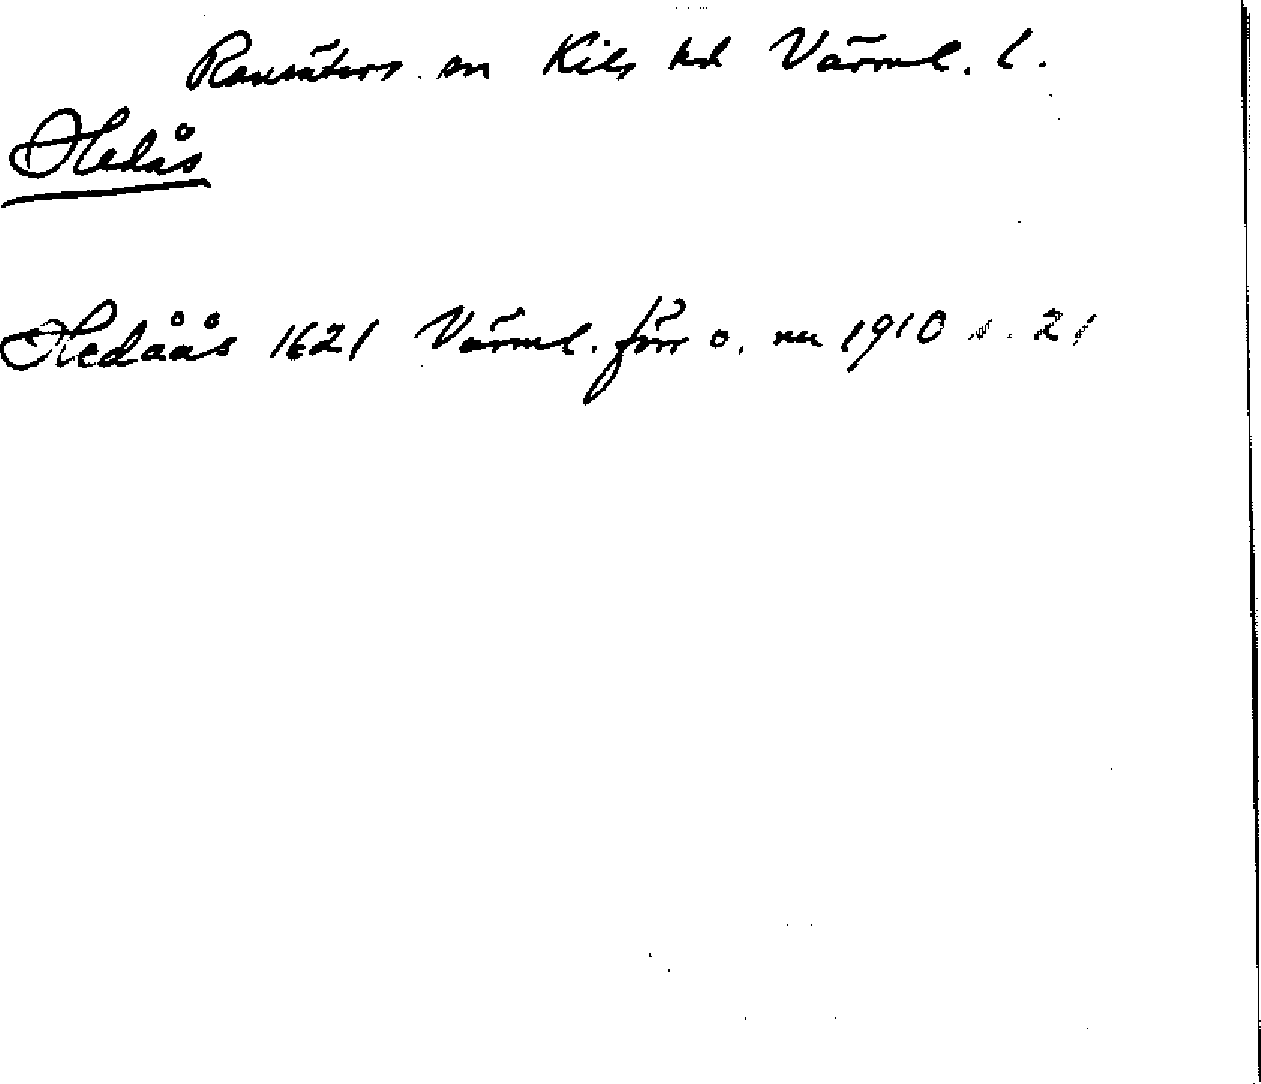 Ransäters sn Kils hd Värml. l.
Hedås
Hedåås 1621 Värml. förr o. nu 1910 s. 21